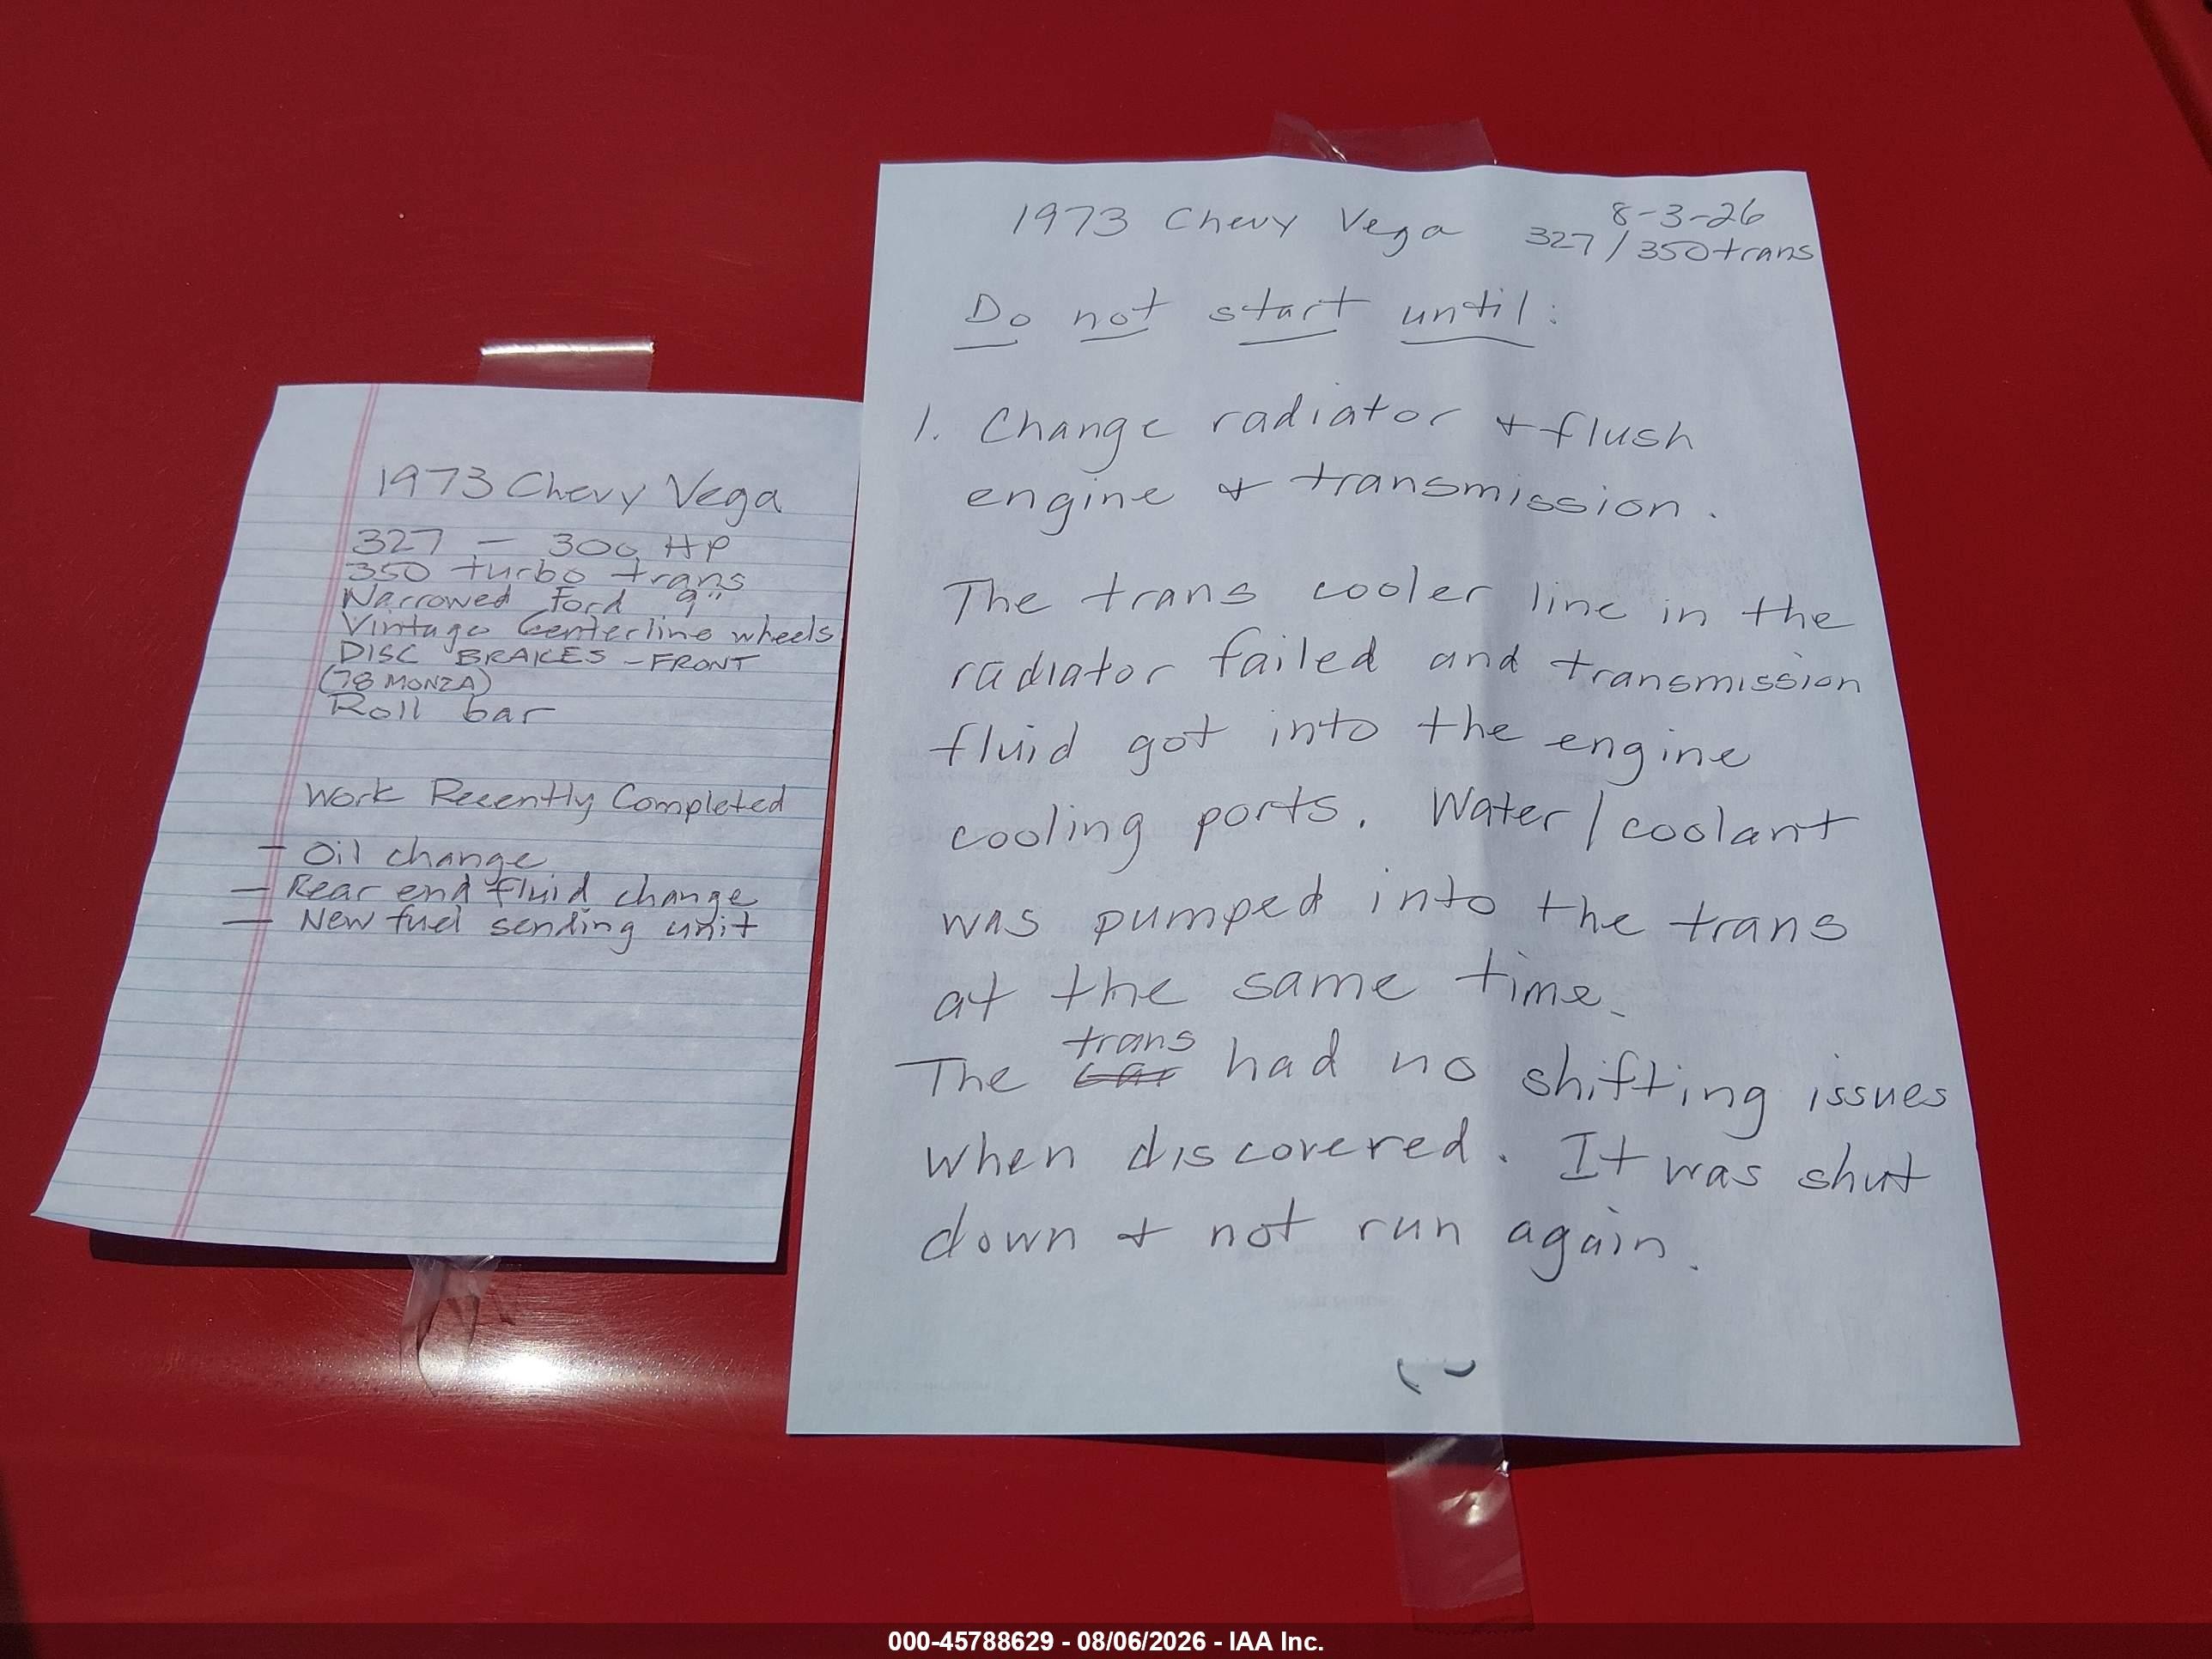 1973 Chevy Vega
327 - 300 HP
350 turbo trans
Narrowed Ford 9"
Vintage Centerline wheels
DISC BRAKES - FRONT
(78 MONZA)
Roll bar
Work Recently Completed
- Oil change
- Rear end fluid change
- New fuel sending unit
8-3-26
1973 Chevy Vega 327/350 trans
Do not start until:
1. Change radiator + flush
engine + transmission.
The trans cooler line in the
radiator failed and transmission
fluid got into the engine
cooling ports. Water/coolant
was pumped into the trans
at the same time.
trans
The car had no shifting issues
when discovered. It was shut
down + not run again.
000-45788629 - 08/06/2026 - IAA Inc.